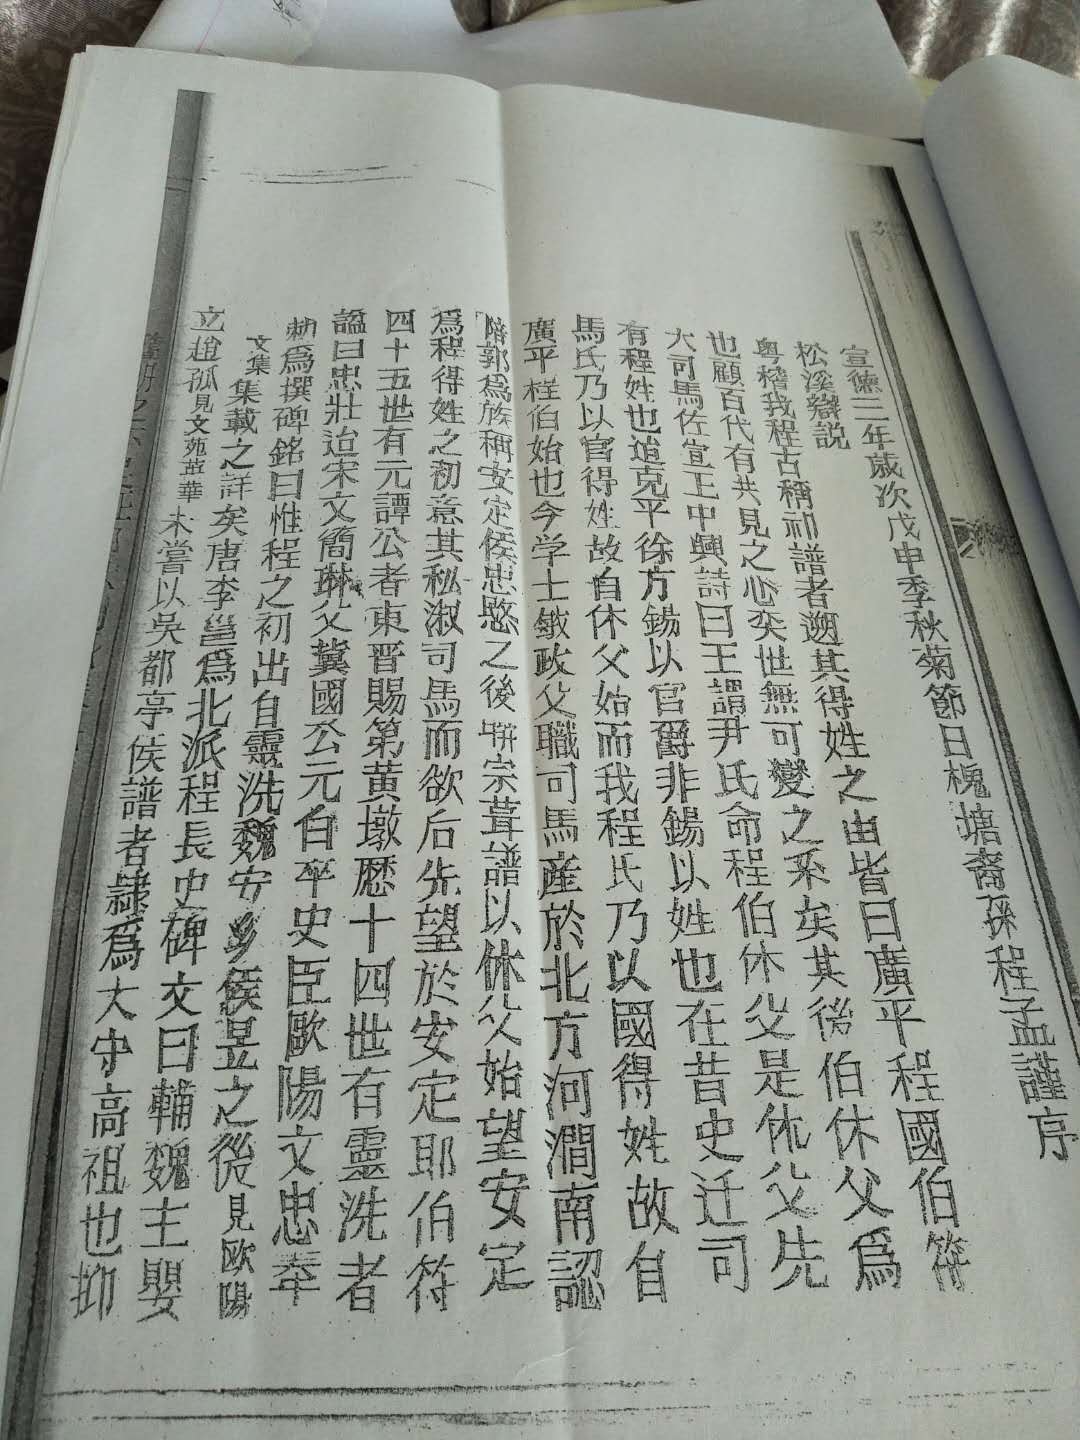 宣德三年歲次戊申季秋菊節日槐塘裔孫程孟謹序
松溪辯説
粤稽我程古稱祁譜者遡其得姓之由皆曰廣平程國伯符
也顧百代有共見之心奕世無可變之系矣其後伯休父爲
大司馬佐宣王中興詩曰王謂尹氏命程伯休父是休父先
有程姓也迨克平徐方錫以官爵非錫以姓也在昔史迁司
馬氏乃以官得姓故自休父始而我程氏乃以國得姓故自
廣平程伯始也今学士敏政父職司馬産於北方河澗南認
陪郭爲族稱安定侯忠愍之後聨宗葺譜以休父始望安定
爲程得姓之初意其私淑司馬而欲后先望於安定耶伯符
四十五世有元譚公者東晋賜第黄墩歷十四世有靈洗者
謚曰忠壯迨宋文簡琳父冀國公元白卒史臣歐陽文忠奉
勅爲撰碑銘曰惟程之初出自靈洗魏安鄉侯昱之後見歐陽
文集集載之詳矣唐李邕爲北派程長史碑文曰輔魏主嬰
立趙孤見文苑英華未嘗以吳都亭侯譜者隷爲大守高祖也抑